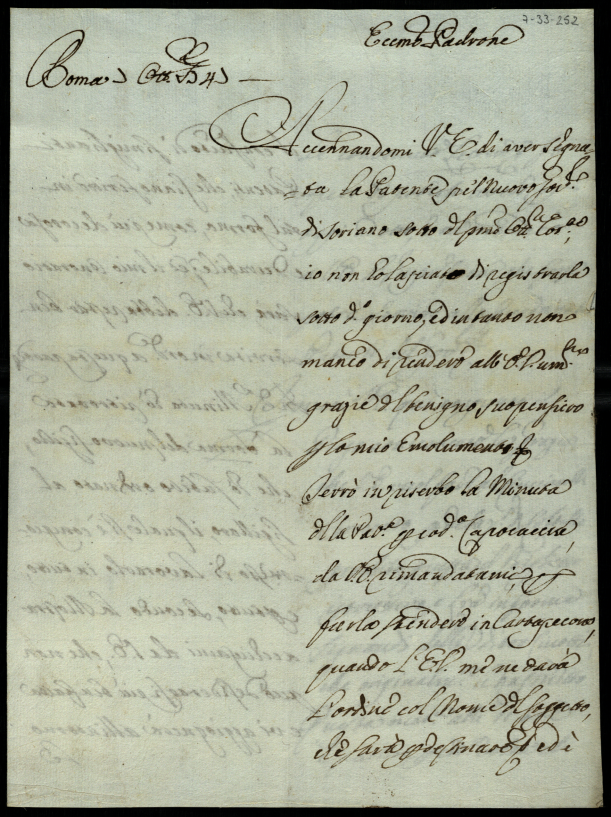 7-33-252
Eccmo Padrone
Roma
Accennandomi V. E. di aver segna-
ta la Patente pel Nuovo Gov.re
di Soriano sotto il pmo
io non lo lasciato di registrarla
sotto d.o giorno, ed intanto non
manco di rendere all' E. V. um.me
grazie del benigno suo pensiero
p lo mio Emolumento
Terrò in riserbo la Minuta
della Pat.e
da rimandatami, p
farla stendere in Carta pecora,
quando l'E. V. me ne darà
l'ordine col Nome del soggetto,
che sarà p destinare ed è